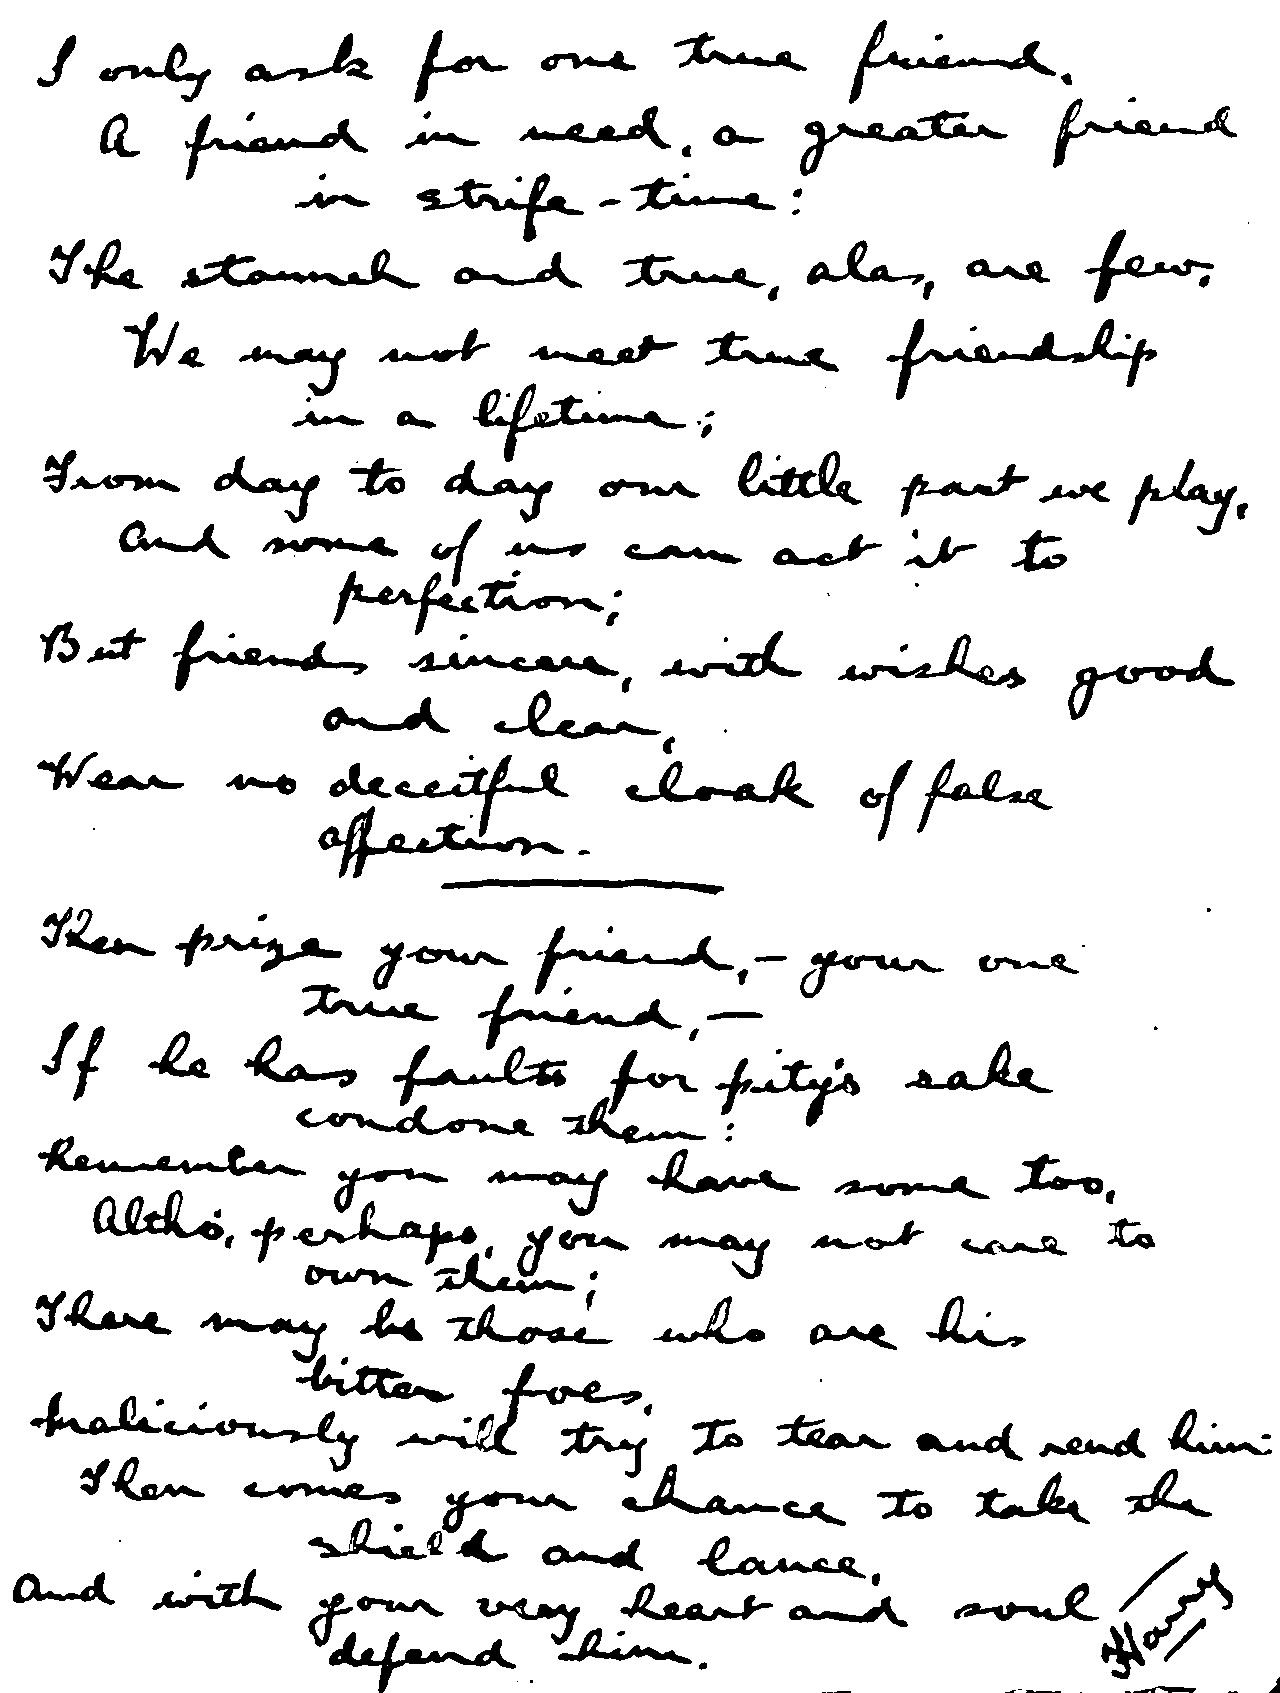 I only ask for one true friend,
A friend in need, a greater friend
in strife-time:
The staunch and true, alas, are few,
We may not meet true friendship
in a lifetime;
From day to day our little part we play,
And some of us can act it to
perfection;
But friends sincere, with wishes good
and clear,
Wear no deceitful cloak of false
affection.
Then prize your friend, — your one
true friend, —
If he has faults for pity's sake
condone them:
Remember you may have some too,
Altho', perhaps, you may not care to
own them;
There may be those who are his
bitter foes,
Maliciously will try to tear and rend him:
Then comes your chance to take the
shield and lance,
And with your very heart and soul
defend him.